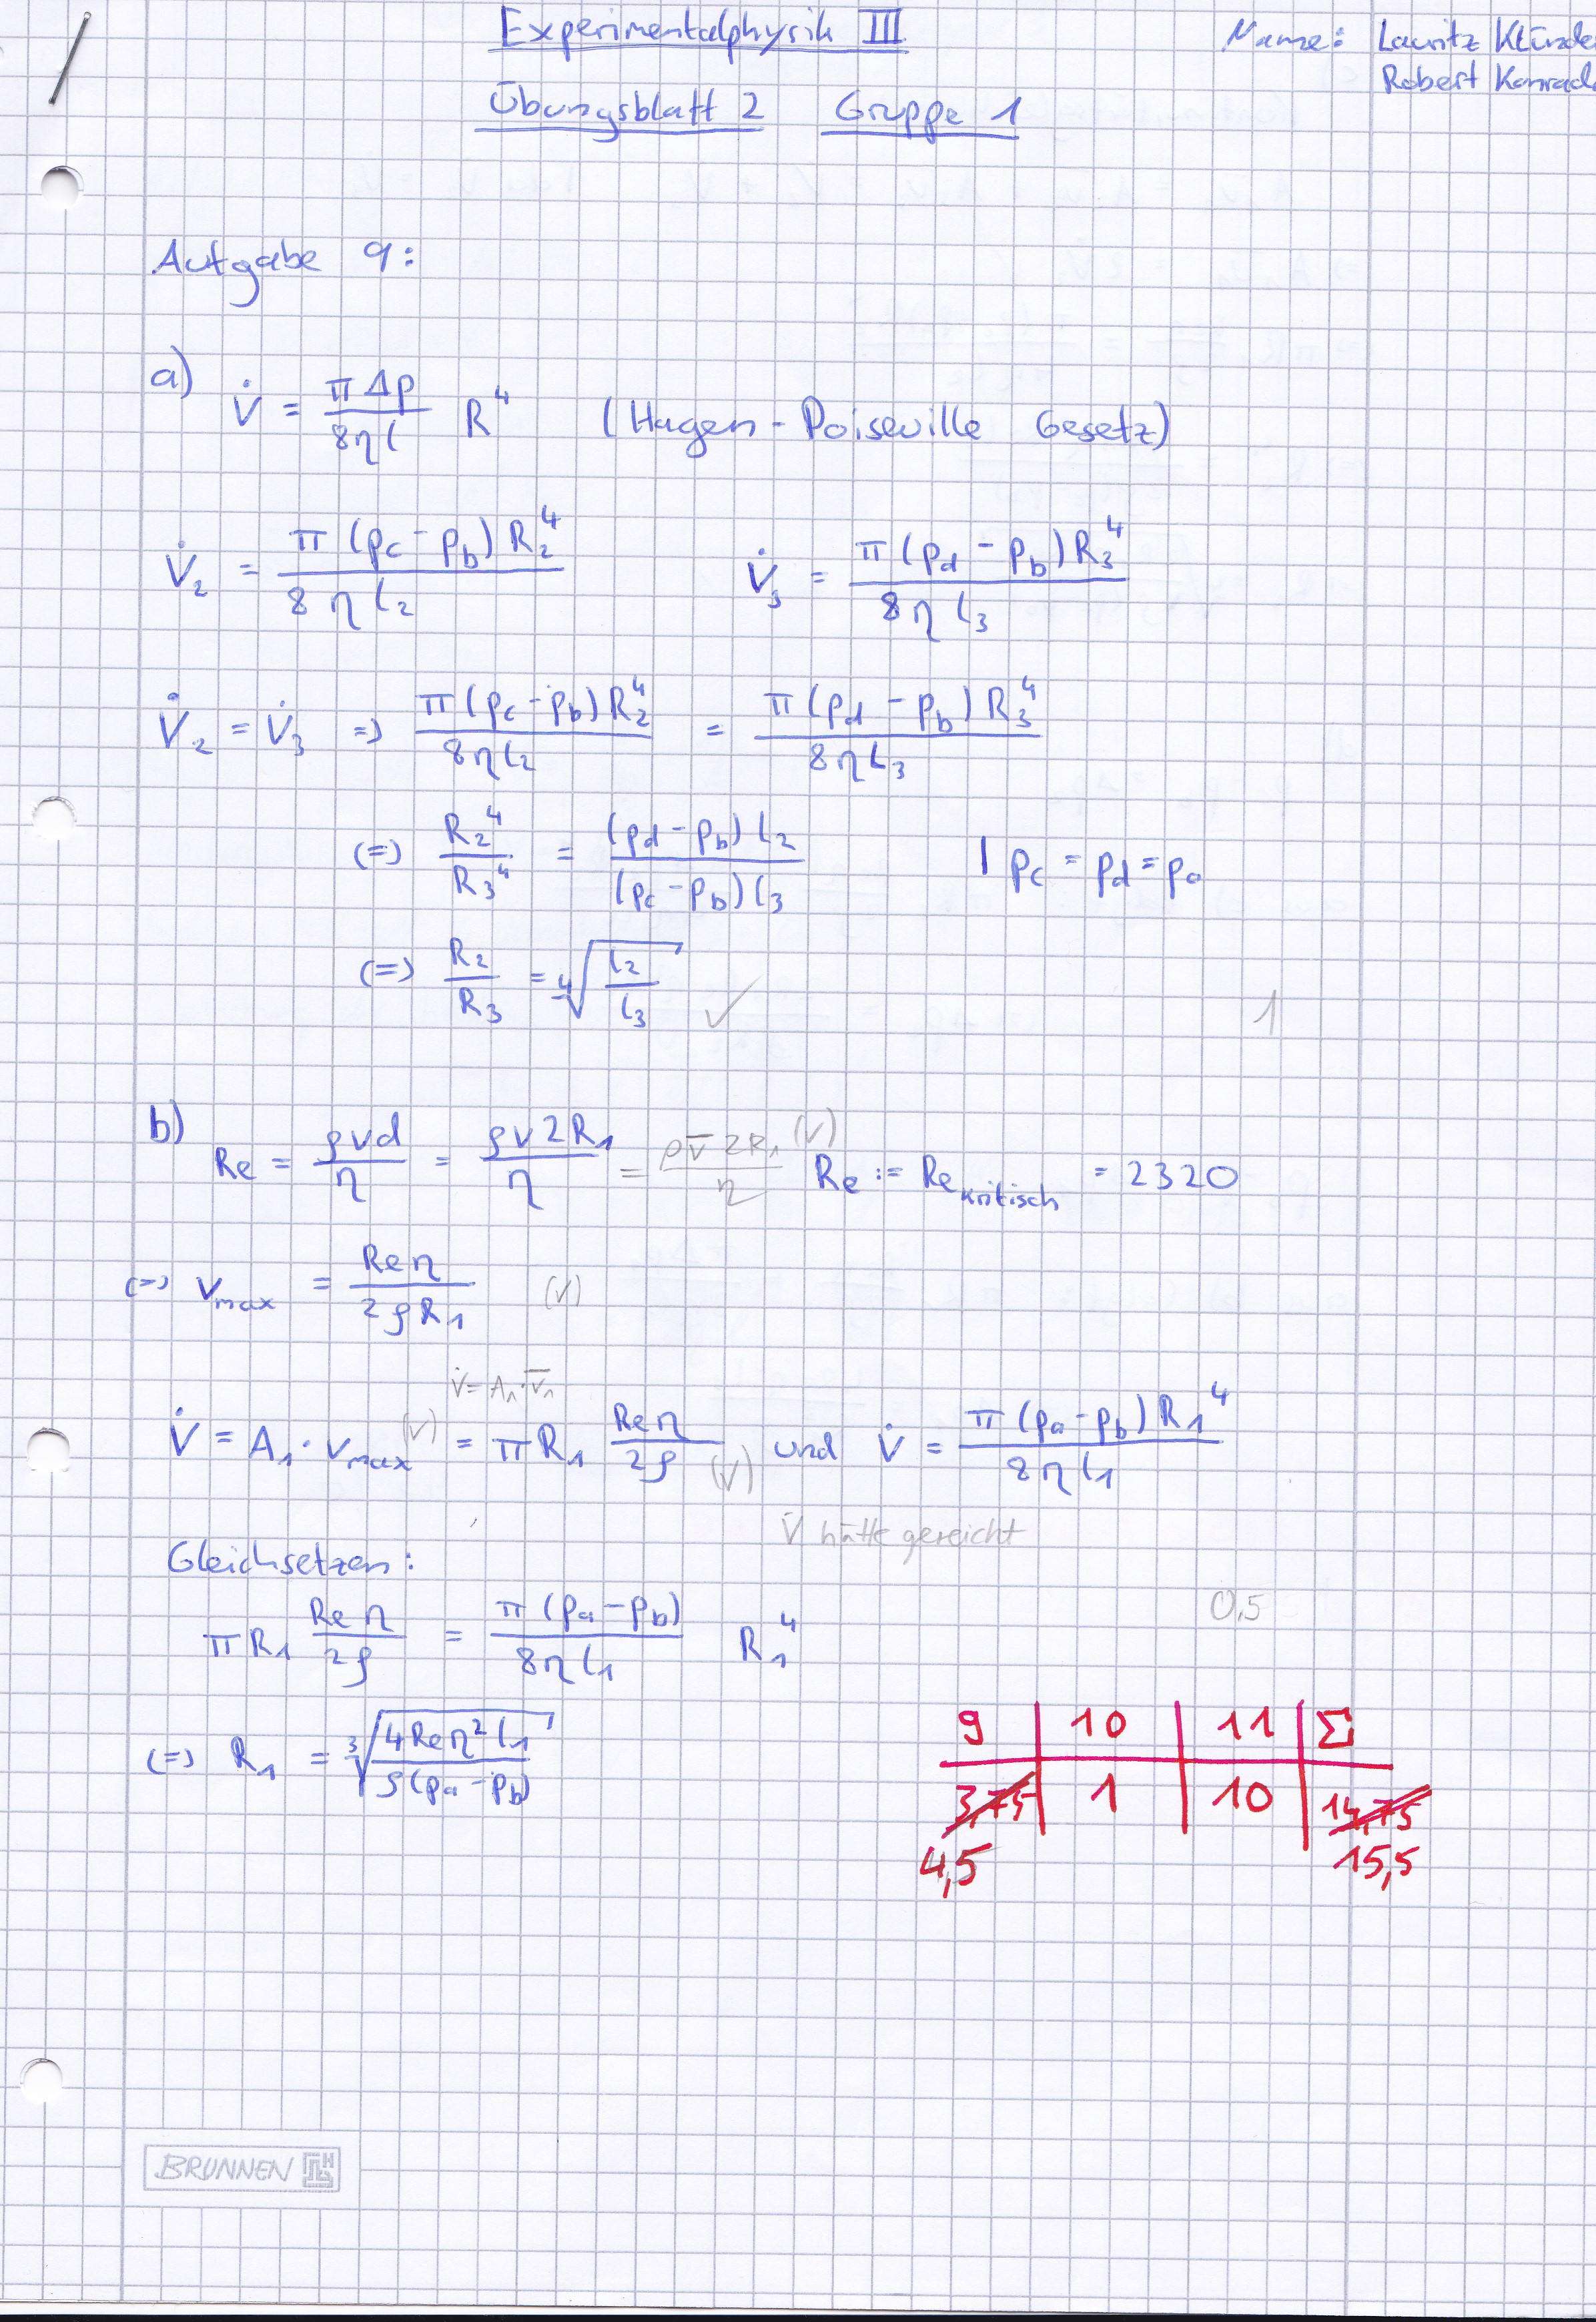 Experimentalphysik III
Name: Lauritz
Robert
Übungsblatt 2 Gruppe 1
Aufgabe 9:
a) V̇ = πΔp/(8ηl) R⁴ (Hagen-Poiseuille Gesetz)
V̇₂ = π(p_c - p_b)R₂⁴/(8ηl₂) V̇₃ = π(p_d - p_b)R₃⁴/(8ηl₃)
V̇₂ = V̇₃ => π(p_c - p_b)R₂⁴/(8ηl₂) = π(p_d - p_b)R₃⁴/(8ηl₃)
(=) R₂⁴/R₃⁴ = (p_d - p_b)l₂/((p_c - p_b)l₃) | p_c = p_d = p₀
(=) R₂/R₃ = ⁴√(l₂/l₃) ✓ 1
b) Re = ρvd/η = ρv2R₁/η = ρv̄2R₁/η (✓) Re := Re_kritisch = 2320
(=) v_max = Reη/(2ρR₁) (✓)
V̇ = A₁·v̄₁
V̇ = A₁ · v_max (✓) = πR₁ Reη/(2ρ) (✓) und V̇ = π(p_a - p_b)R₁⁴/(8ηl₁)
V̇ hätte gereicht
Gleichsetzen:
0,5
πR₁ Reη/(2ρ) = π(p_a - p_b)/(8ηl₁) R₁⁴
(=) R₁ = ³√(4Reη²l₁/(ρ(p_a - p_b)))
9 10 11 Σ
3,75 1 10 14,75
4,5 15,5
BRUNNEN